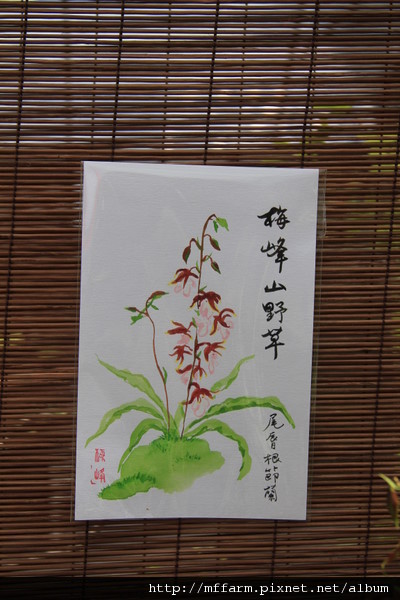 梅峰山野草
尾唇根節蘭
http://mffarm.pixnet.net/album